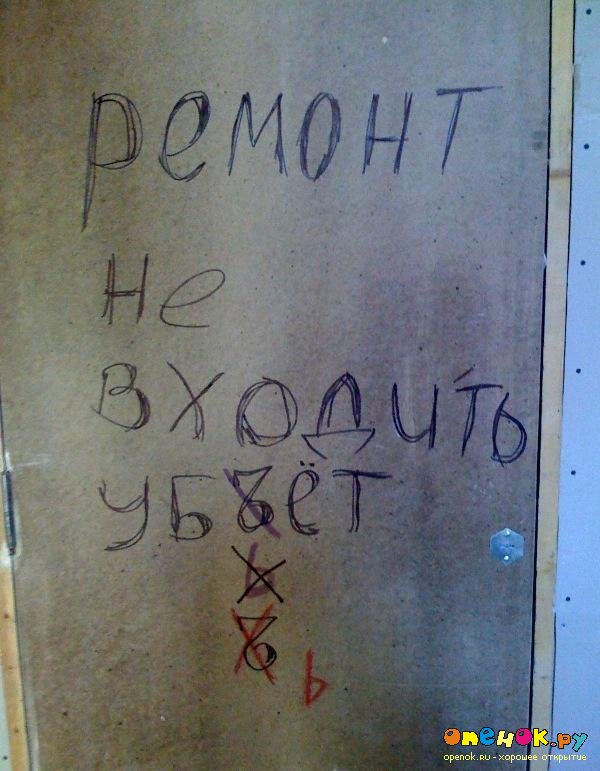 ремонт
не
входить
убъёт
ь
ъ
ь
опенок.ру
openok.ru - хорошее открытие